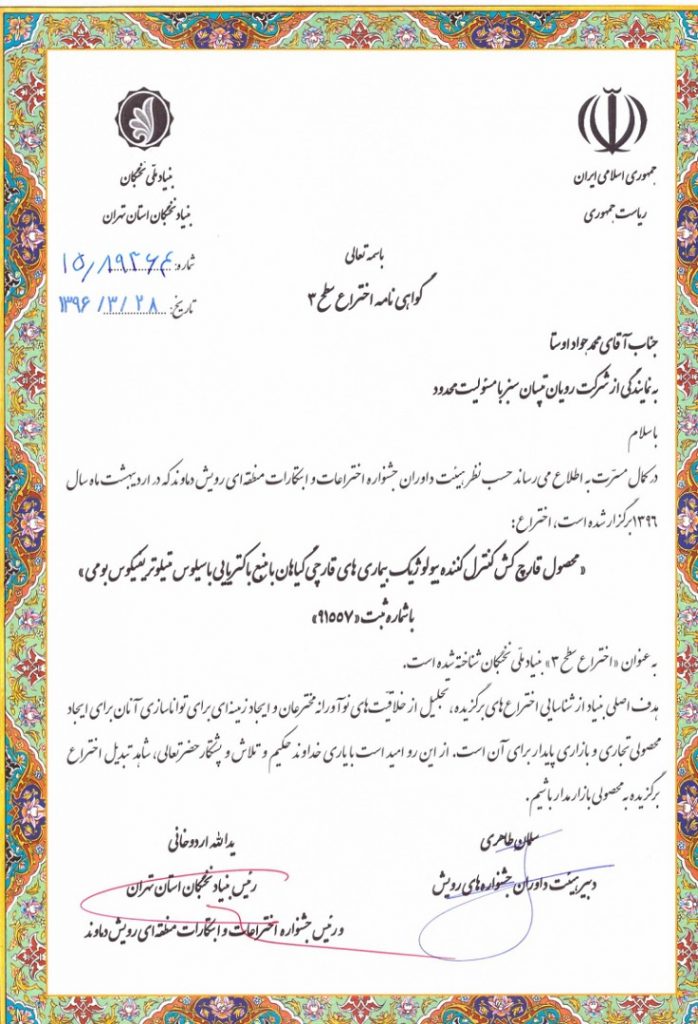 جمهوری اسلامی ایران
ریاست جمهوری
بنیاد ملّی نخبگان
بنیاد نخبگان استان تهران
شماره: ۱۵/۸۹۴۶۴
تاریخ: ۱۳۹۶/۳/۲۸
باسمه تعالی
گواهی نامه اختراع سطح ۳
جناب آقای محمدجواد اوستا
به نمایندگی از شرکت رویان تیسان سبز با مسئولیت محدود
باسلام
در کمال مسرّت به اطلاع می‌رساند حسب نظر هیئت داوران جشنواره اختراعات و ابتکارات منطقه‌ای رویش دماوند که در اردیبهشت ماه سال
۱۳۹۶ برگزار شده است، اختراع:
«محصول قارچ کش کنترل کننده بیولوژیک بیماری های قارچی گیاهان با منبع باکتریایی باسیلوس متیلوتریفیکوس بومی»
با شماره ثبت «۹۱۵۵۷»
به عنوان «اختراع سطح ۳» بنیاد ملّی نخبگان شناخته شده است.
هدف اصلی بنیاد از شناسایی اختراع های برگزیده، تجلیل از خلاقیت های نوآورانه مخترعان و ایجاد زمینه ای برای تواناسازی آنان برای ایجاد
محصولی تجاری و بازاری پایدار برای آن است. از این رو امید است با یاری خداوند حکیم و تلاش و پشتکار حضرتعالی، شاهد تبدیل اختراع
برگزیده به محصولی بازار مدار باشیم.
سلمان طاهری
دبیر هیئت داوران جشنواره های رویش
یدالله اردوخانی
رئیس بنیاد نخبگان استان تهران
و رئیس جشنواره اختراعات و ابتکارات منطقه ای رویش دماوند